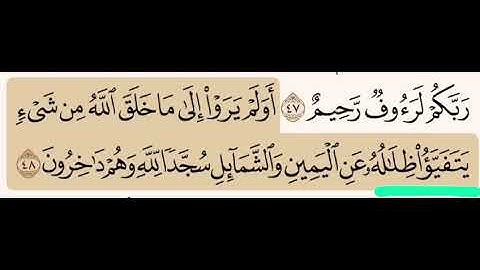 رَبَّكُمْ لَرَءُوفٌ رَّحِيمٌ ٤٧ أَوَلَمْ يَرَوْا۟ إِلَىٰ مَا خَلَقَ ٱللَّهُ مِن شَىْءٍ
يَتَفَيَّؤُا۟ ظِلَٰلُهُۥ عَنِ ٱلْيَمِينِ وَٱلشَّمَآئِلِ سُجَّدًا لِّلَّهِ وَهُمْ دَٰخِرُونَ ٤٨